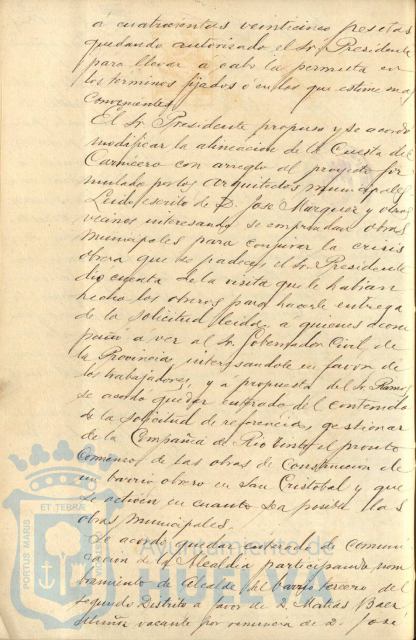 á cuatrocientas veinticinco pesetas
quedando autorizado el Sr. Presidente
para llevar á cabo la permuta en
los terminos fijados ó en los que estime mas
convenientes.
El Sr. Presidente propuso y se acordó
modificar la alineacion de la Cuesta del
Carnicero con arreglo al proyecto for
mulado por los Arquitectos municipales
Leido escrito de D. José Marquez y otros
vecinos interesando se emprendan obras
municipales para conjurar la crisis
obrera que se padece, el Sr. Presidente
dio cuenta de la visita que le habian
hecho los obreros para hacerle entrega
de la solicitud leida, á quienes acom
pañó a ver al Sr. Gobernador Civil de
la Provincia, interesandole en favor de
los trabajadores, y a propuesta del Sr. Ramos
se acordó quedar enterado del contenido
de la solicitud de referencia, gestionar
de la Compañia de Rio Tinto el pronto
comienzo de las obras de Construccion de
un barrio obrero en San Cristobal y que
se activen en cuanto se pueda las
obras municipales.
Se acordó quedar enterado de comuni
cacion de la Alcaldia participando nom
bramiento de Alcalde del barrio tercero del
segundo Distrito a favor de D. Matias Baez
vacante por renuncia de D. José
PORTUS MARIS ET TERRÆ
Ayuntamiento de
HUELVA